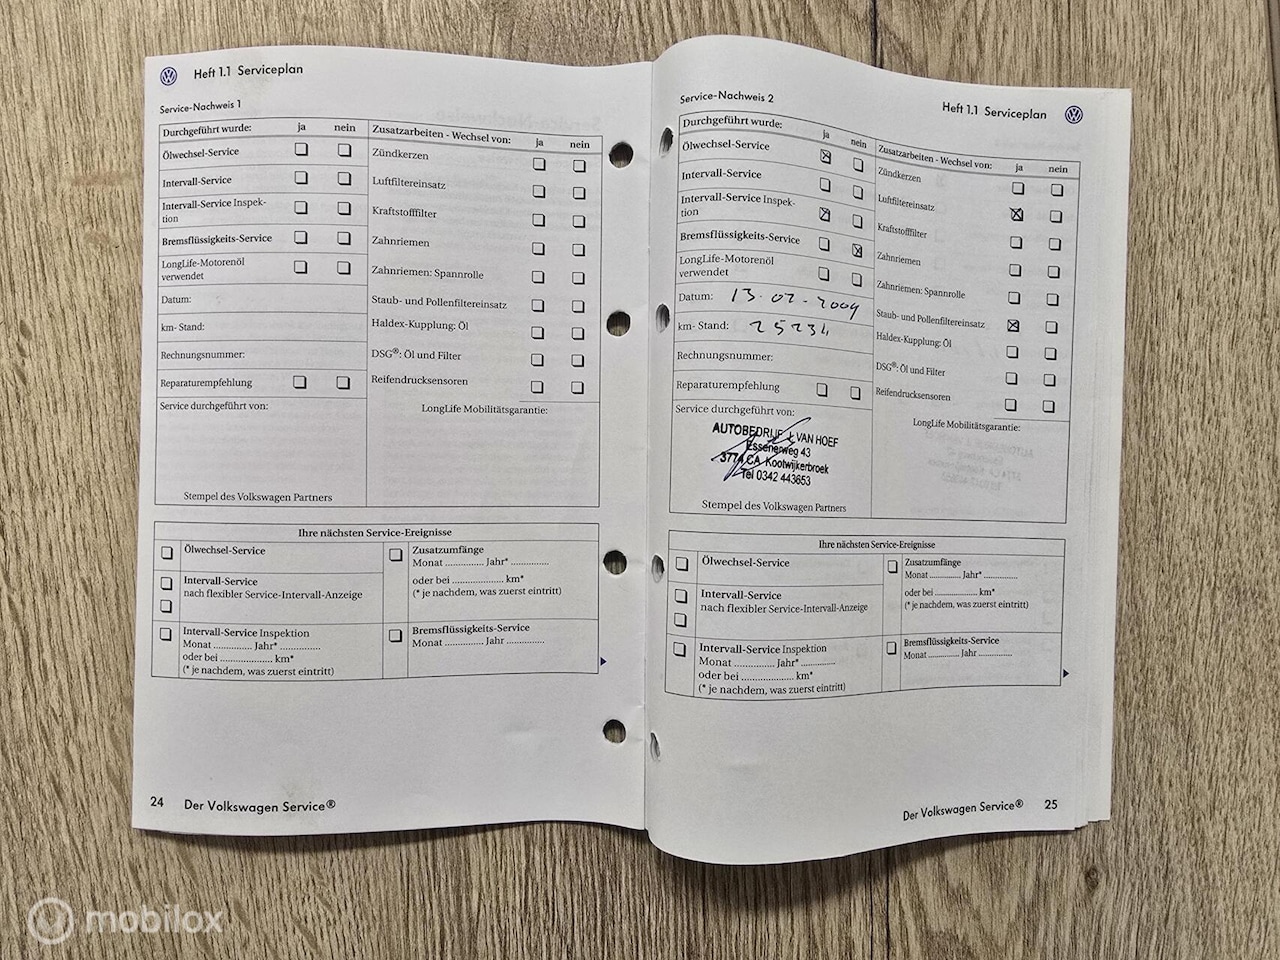 Heft 1.1 Serviceplan
Service-Nachweis 1
Durchgeführt wurde: ja nein
Ölwechsel-Service
Intervall-Service
Intervall-Service Inspek-
tion
Bremsflüssigkeits-Service
LongLife-Motorenöl
verwendet
Datum:
km- Stand:
Rechnungsnummer:
Reparaturempfehlung
Service durchgeführt von:
Stempel des Volkswagen Partners
Zusatzarbeiten - Wechsel von: ja nein
Zündkerzen
Luftfiltereinsatz
Kraftstofffilter
Zahnriemen
Zahnriemen: Spannrolle
Staub- und Pollenfiltereinsatz
Haldex-Kupplung: Öl
DSG®: Öl und Filter
Reifendrucksensoren
LongLife Mobilitätsgarantie:
Ihre nächsten Service-Ereignisse
Ölwechsel-Service
Intervall-Service
nach flexibler Service-Intervall-Anzeige
Intervall-Service Inspektion
Monat .............. Jahr* ..............
oder bei ...................... km*
(* je nachdem, was zuerst eintritt)
Zusatzumfänge
Monat .............. Jahr* ..............
oder bei ...................... km*
(* je nachdem, was zuerst eintritt)
Bremsflüssigkeits-Service
Monat .............. Jahr ..............
24 Der Volkswagen Service®
Service-Nachweis 2
Heft 1.1 Serviceplan
Durchgeführt wurde: ja nein
Ölwechsel-Service
Intervall-Service
Intervall-Service Inspek-
tion
Bremsflüssigkeits-Service
LongLife-Motorenöl
verwendet
Datum: 13-02-2009
km- Stand: 25234
Rechnungsnummer:
Reparaturempfehlung
Service durchgeführt von:
AUTOBEDRIJF J. VAN HOEF
Essenerweg 43
3774 CA Kootwijkerbroek
Tel 0342 443653
Stempel des Volkswagen Partners
Zusatzarbeiten - Wechsel von: ja nein
Zündkerzen
Luftfiltereinsatz
Kraftstofffilter
Zahnriemen
Zahnriemen: Spannrolle
Staub- und Pollenfiltereinsatz
Haldex-Kupplung: Öl
DSG®: Öl und Filter
Reifendrucksensoren
LongLife Mobilitätsgarantie:
Ihre nächsten Service-Ereignisse
Ölwechsel-Service
Intervall-Service
nach flexibler Service-Intervall-Anzeige
Intervall-Service Inspektion
Monat .............. Jahr* ..............
oder bei ...................... km*
(* je nachdem, was zuerst eintritt)
Zusatzumfänge
Monat .............. Jahr* ..............
oder bei ...................... km*
(* je nachdem, was zuerst eintritt)
Bremsflüssigkeits-Service
Monat .............. Jahr ..............
Der Volkswagen Service® 25
mobilox